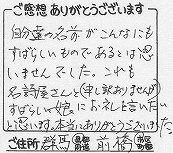 ご感想 ありがとうございます
自分達の名前がこんなにも
すばらしいものであるとは思
いませんでした。これも
名詩屋さんと(申し訳ありませんが)
すばらしい娘にお礼を言いたい
と思います。本当にありがとうございました。
ご住所 群馬 県 前橋 市